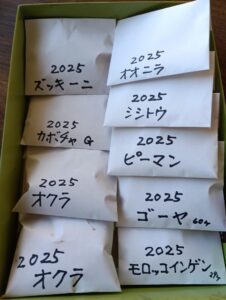 2025
ズッキーニ
2025
カボチャ G
2025
オクラ
2025
オクラ
2025
オオニラ
2025
シシトウ
2025
ピーマン
2025
ゴーヤ 60ヶ
2025
モロッコインゲン